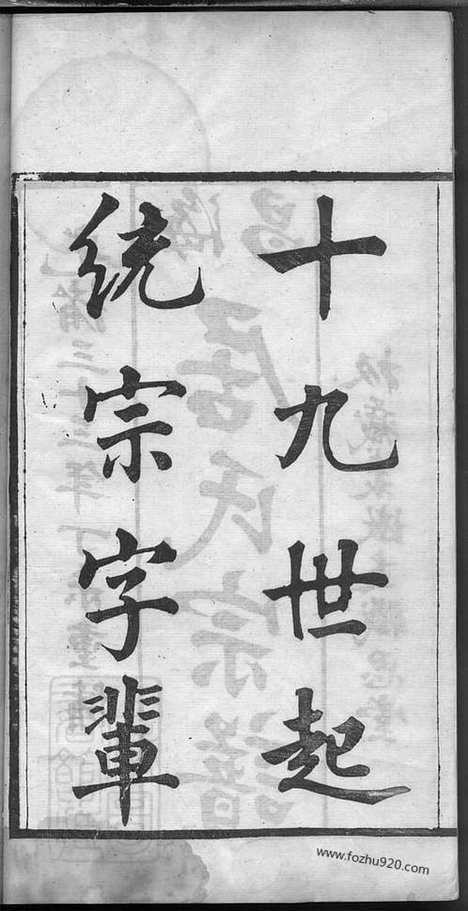 十九世起
統宗字輩
www.fozhu920.com